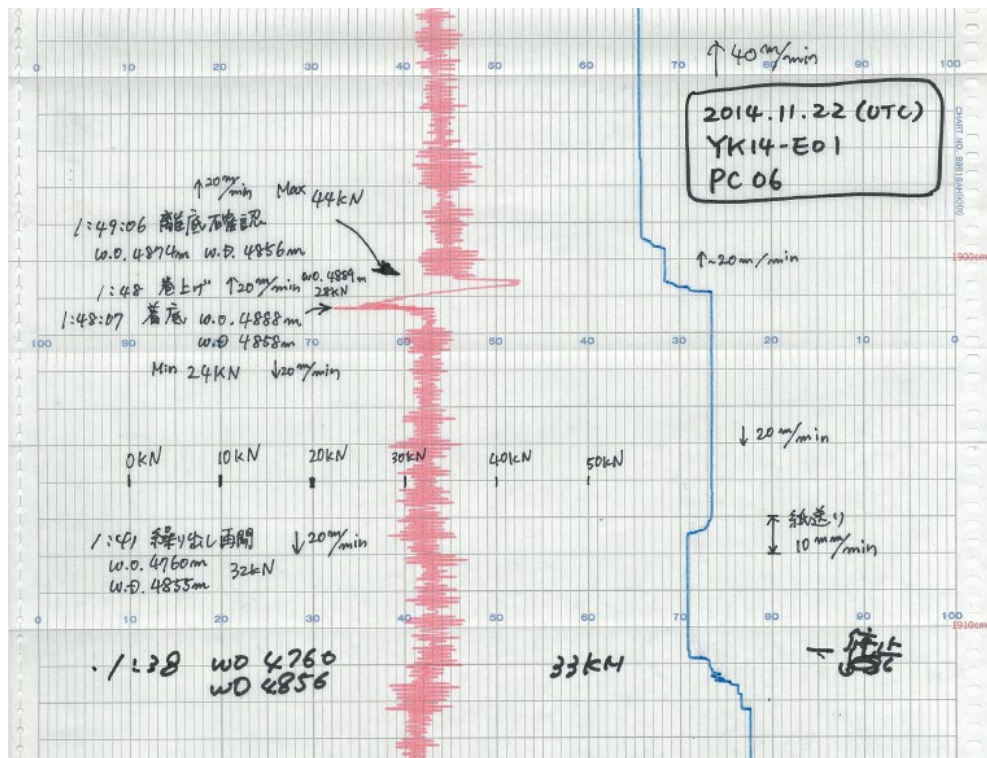 ↑ 40 m/min
0 20 30 40 50 60 70 80 90 100
2014.11.22 (UTC)
YK14-E01
PC 06
↑20 m/min Max 44KN
1:49:06 離底確認
W.O. 4874m W.D. 4856m
↑~20 m/min
1900cm
1:48 巻上げ ↑20 m/min W.O. 4889m
28KN
1:48:07 着底 W.O. 4888m
W.D 4858m
100 90 80 60 50 40 30 20 10 0
Min 24KN ↓20 m/min
↓ 20 m/min
0KN 10KN 20KN 30KN 40KN 50KN
紙送り
10 mm/min
1:41 繰り出し再開 ↓20 m/min
W.O. 4760m 32KN
W.D. 4855m
0 10 20 30 40 50 60 70 80 90 100
1910cm
1:38 WO 4760 33KN
WD 4856